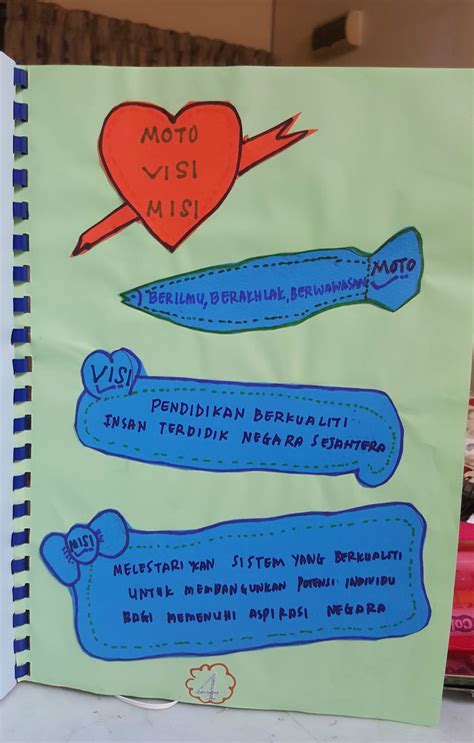 MOTO
VISI
MISI
BERILMU, BERAKHLAK, BERWAWASAN
MOTO
VISI
PENDIDIKAN BERKUALITI
INSAN TERDIDIK NEGARA SEJAHTERA
MISI
MELESTARIKAN SISTEM YANG BERKUALITI
UNTUK MEMBANGUNKAN POTENSI INDIVIDU
BAGI MEMENUHI ASPIRASI NEGARA
1